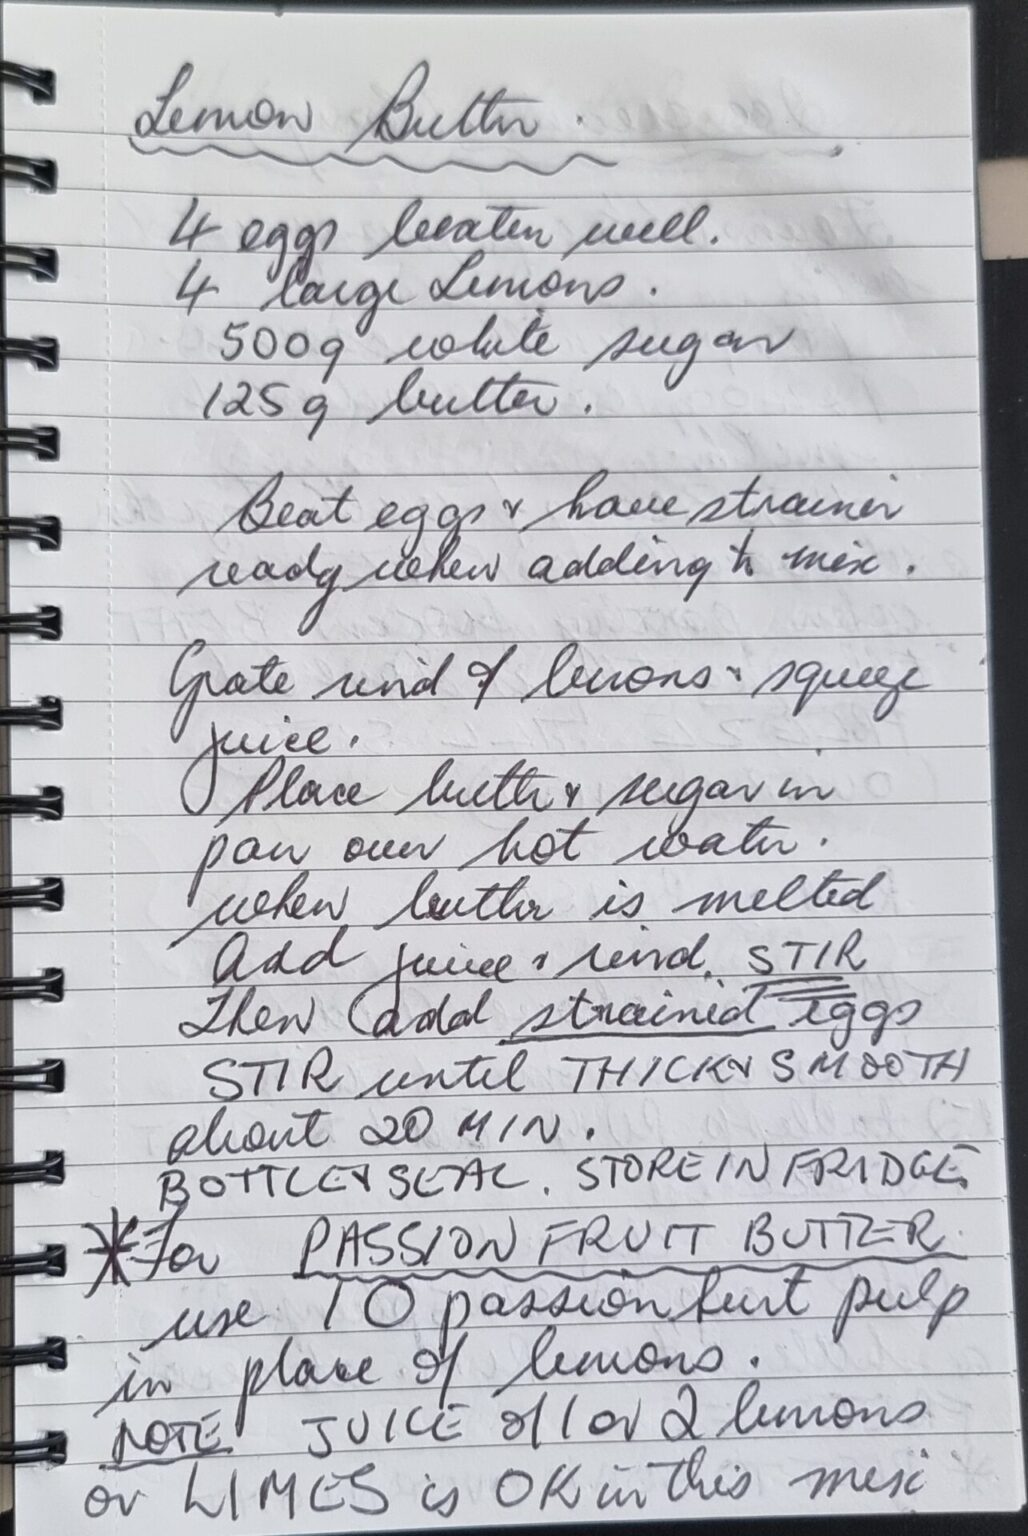 Lemon Butter.
4 eggs beaten well.
4 large Lemons.
500g white sugar
125g butter.
Beat eggs & have strainer
ready when adding to mix.
Grate rind of lemons & squeeze
juice.
Place butter & sugar in
pan over hot water.
when butter is melted
Add juice & rind. STIR
Then add strained eggs
STIR until THICK & SMOOTH
about 20 MIN.
BOTTLE & SEAL. STORE IN FRIDGE.
* For PASSION FRUIT BUTTER.
use 10 passionfuit pulp
in place of lemons.
NOTE JUICE of 1 or 2 lemons
or LIMES is OK in this mix